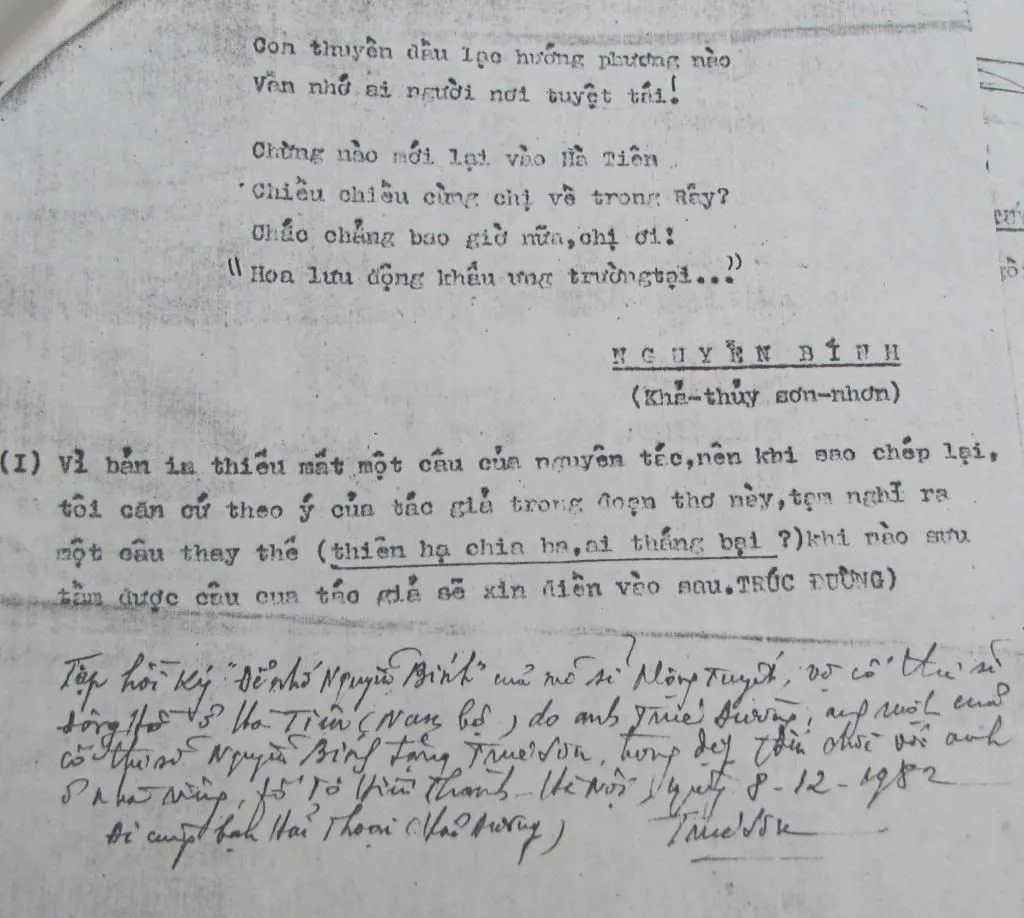 Con thuyền dầu lạc hướng phương nào
Vẫn nhớ ai người nơi tuyệt tái!
Chừng nào mới lại vào Hà Tiên
Chiều chiều cùng chị về trong Rẫy?
Chắc chẳng bao giờ nữa,chị ơi!
"Hoa lưu động khẩu ưng trườngtại..."
NGUYỄN BÍNH
(Khả-thủy sơn-nhơn)
(I) Vì bản in thiếu mất một câu của nguyên tác,nên khi sao chép lại,
tôi căn cứ theo ý của tác giả trong đoạn thơ này,tạm nghĩ ra
một câu thay thế (thiên hạ chia ba,ai thắng bại ?)khi nào sưu
tầm được câu của tác giả sẽ xin điền vào sau.TRÚC ĐƯỜNG)
Tập hồi ký "Để nhớ Nguyễn Bính" của nữ sĩ Mộng Tuyết, vợ cố thi sĩ
Đông Hồ ở Hà Tiên (Nam bộ) do anh Trúc Đường, anh ruột của
cố thi sĩ Nguyễn Bính tặng Trúc Sơn, trong dịp đến chơi với anh
ở nhà riêng, phố Tô Hiến Thành - Hà Nội, ngày 8-12-1982
Đi cùng bạn Hải Thoại (Hải Dương) Trúc Sơn